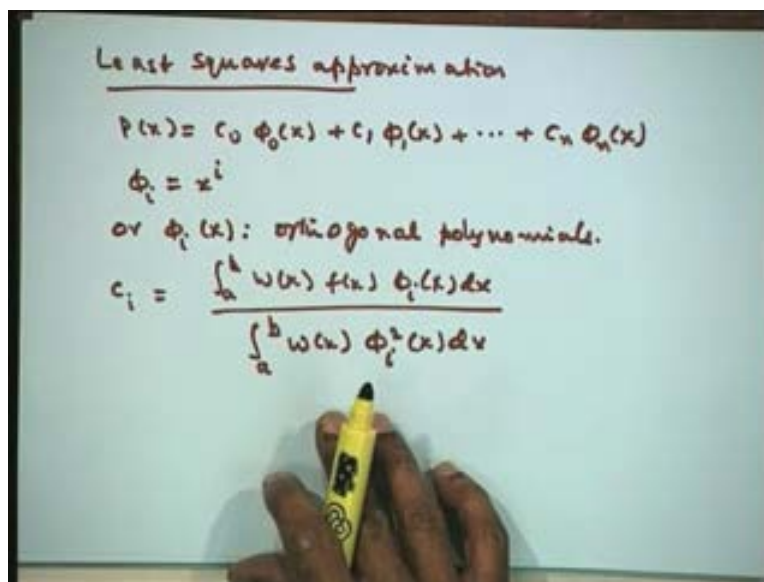 Least squares approximation
P(x) = c₀ φ₀(x) + c₁ φ₁(x) + ··· + cₙ φₙ(x)
φᵢ = xⁱ
or φᵢ(x): orthogonal polynomials.
cᵢ = ∫ₐᵇ w(x) f(x) φᵢ(x) dx
∫ₐᵇ w(x) φᵢ²(x) dx